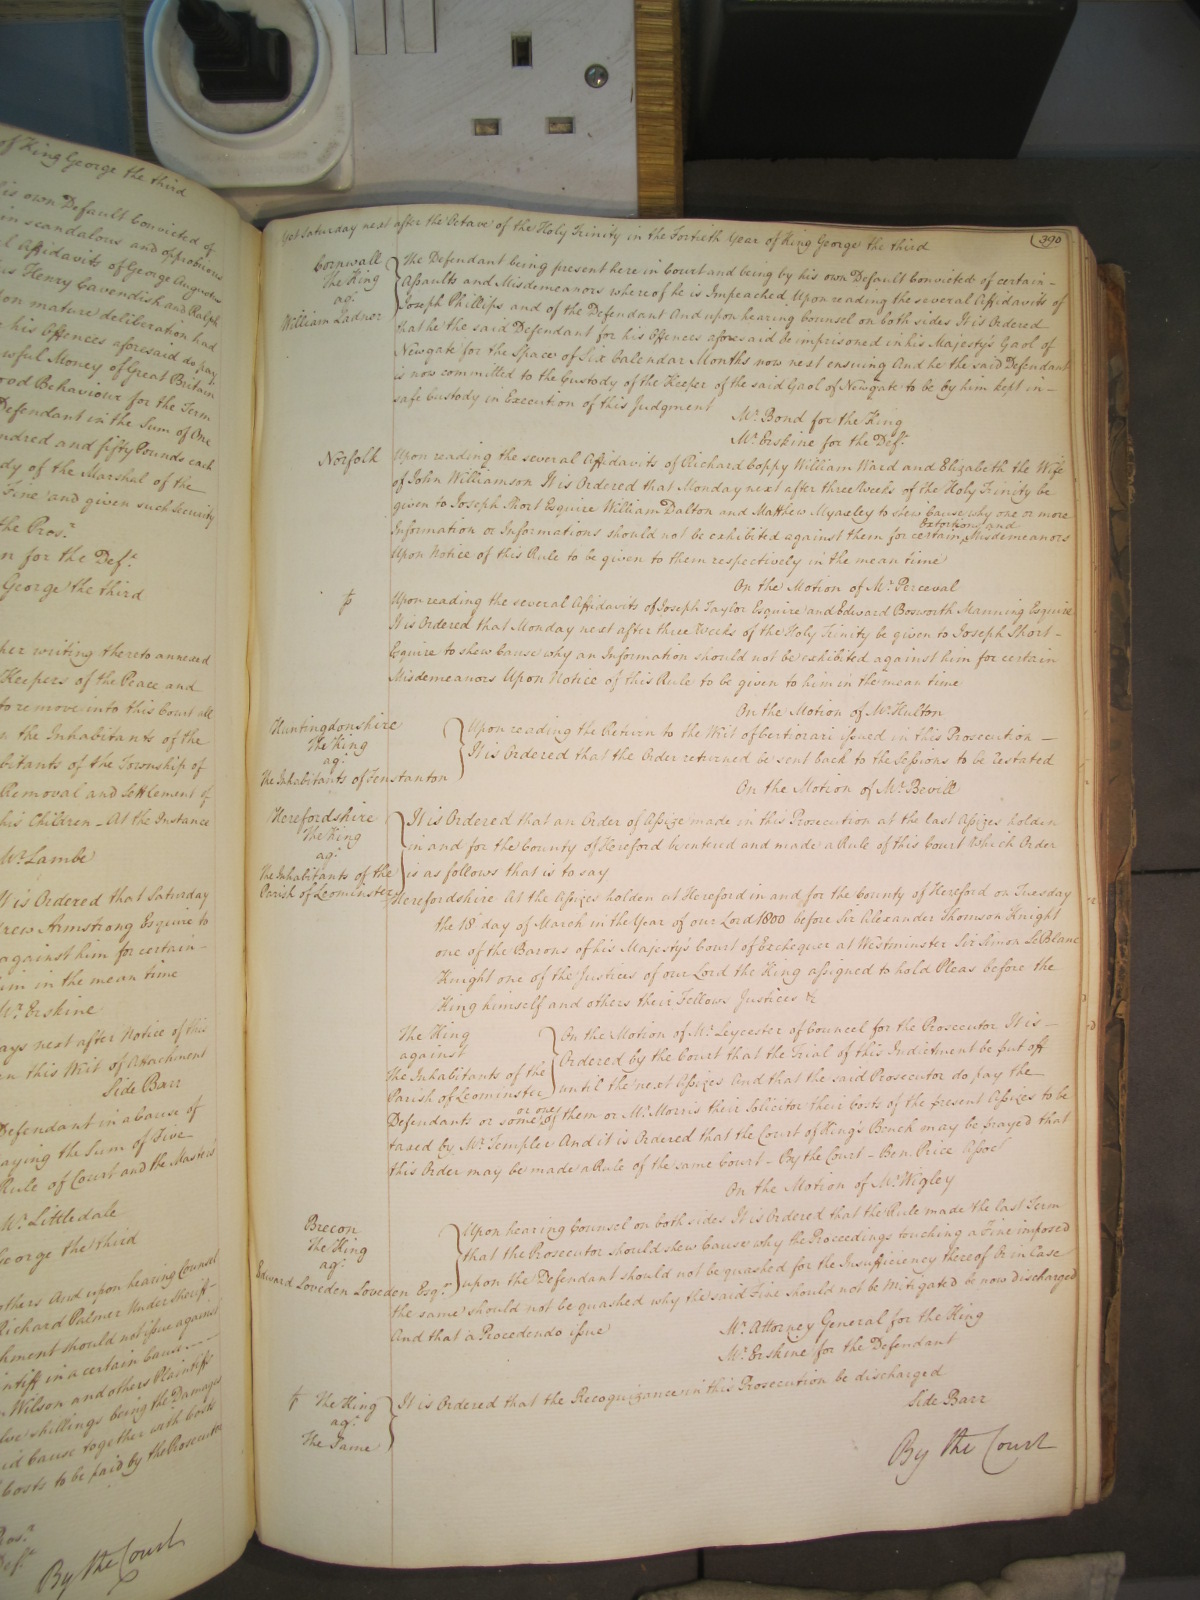 of King George the third
his own Default Convicted of
in scandalous and opprobrious
Affidavits of George Augustus
Henry Cavendish and Ralph
on mature deliberation had
his Offences aforesaid do pay
lawful Money of Great Britain
Good Behaviour for the Term
Defendant in the Sum of One
hundred and fifty Pounds each
dy of the Marshal of the
Fine and given such Security
the Pros.r
n for the Def.t
George the third
her writing thereto annexed
Keepers of the Peace and
to remove into this Court all
the Inhabitants of the
bitants of the Township of
Removal and Settlement of
his Children _ At the Instance
Mr Lambe
It is Ordered that Saturday
rew Armstrong Esquire to
against him for certain _
him in the mean time
Mr Erskine
ays next after Notice of this
on this Writ of Attachment
Side Barr
Defendant in a Cause of
aying the Sum of Five
Rule of Court and the Masters
Mr Littledale
George the third
others And upon hearing Counsel
Richard Palmer Under Sheriff _
hment should not issue against
intiff in a certain Cause _
Wilson and others Plaintiff
lve shillings being the Damages
id Cause together with Costs
Costs to be paid by the Prosecutor
Pros.r
Def.t
By the Court
390
Yet Saturday next after the Octave of the Holy Trinity in the Fortieth Year of King George the third
Cornwall
The King
ag.t
William Ladner
The Defendant being present here in Court and being by his own Default Convicted of certain _
Assaults and Misdemeanors whereof he is Impeached Upon reading the several Affidavits of
Joseph Phillips and of the Defendant And upon hearing Counsel on both sides It is Ordered
that he the said Defendant for his Offences aforesaid be imprisoned in his Majesty's Gaol of
Newgate for the Space of Six Calendar Months now next ensuing And he the said Defendant
is now committed to the Custody of the Keeper of the said Gaol of Newgate to be by him kept in _
safe Custody in Execution of this Judgment
Mr Bond for the King
Mr Erskine for the Def.t
Norfolk
Upon reading the several Affidavits of Richard Coppy William Ward and Elizabeth the Wife
of John Williamson It is Ordered that Monday next after three Weeks of the Holy Trinity be
given to Joseph Short Esquire William Dalton and Matthew Myazley to shew Cause why one or more
Extortions and
Information or Informations should not be exhibited against them for certain Misdemeanors
Upon Notice of this Rule to be given to them respectively in the mean time
On the Motion of Mr Perceval
Upon reading the several Affidavits of Joseph Taylor Esquire and Edward Bosworth Manning Esquire
It is Ordered that Monday next after three Weeks of the Holy Trinity be given to Joseph Short _
Esquire to shew Cause why an Information should not be exhibited against him for certain
Misdemeanors Upon Notice of this Rule to be given to him in the mean time
On the Motion of Mr Hulton
Huntingdonshire
The King
ag.t
The Inhabitants of Fenstanton
Upon reading the Return to the Writ of Certiorari issued in this Prosecution _
It is Ordered that the Order returned be sent back to the Sessions to be restated
On the Motion of Mr Bevill
Herefordshire
The King
ag.t
The Inhabitants of the
Parish of Leominster
It is Ordered that an Order of Assize made in this Prosecution at the last Assizes holden
in and for the County of Hereford be entered and made a Rule of this Court Which Order
is as follows that is to say
Herefordshire At the Assizes holden at Hereford in and for the County of Hereford on Tuesday
the 18 day of March in the Year of our Lord 1800 before Sir Alexander Thomson Knight
one of the Barons of his Majesty's Court of Exchequer at Westminster Sir Simon Le Blanc
Knight one of the Justices of our Lord the King assigned to hold Pleas before the
King himself and others their Fellows Justices &c
The King
against
The Inhabitants of the
Parish of Leominster
On the Motion of Mr Leycester of Councel for the Prosecutor It is _
Ordered by the Court that the Trial of this Indictment be put off
until the next Assizes And that the said Prosecutor do pay the
or one
Defendants or some of them or Mr Morris their Solicitor their Costs of the present Assizes to be
taxed by Mr Templer And it is Ordered that the Court of King's Bench may be prayed that
this Order may be made a Rule of the same Court _ By the Court _ Ben. Price Assoc.t
On the Motion of Mr Wigley
Brecon
The King
ag.t
Edward Loveden Loveden Esq.r
Upon hearing Counsel on both sides It is Ordered that the Rule made the last Term
that the Prosecutor should shew Cause why the Proceedings touching a Fine imposed
upon the Defendant should not be quashed for the Insufficiency thereof Or in Case
the same should not be quashed why the said Fine should not be Mitigated be now discharged
And that a Procedendo issue
Mr Attorney General for the King
Mr Erskine for the Defendant
The King
ag.t
The Same
It is Ordered that the Recognizance in this Prosecution be discharged
Side Barr
By the Court